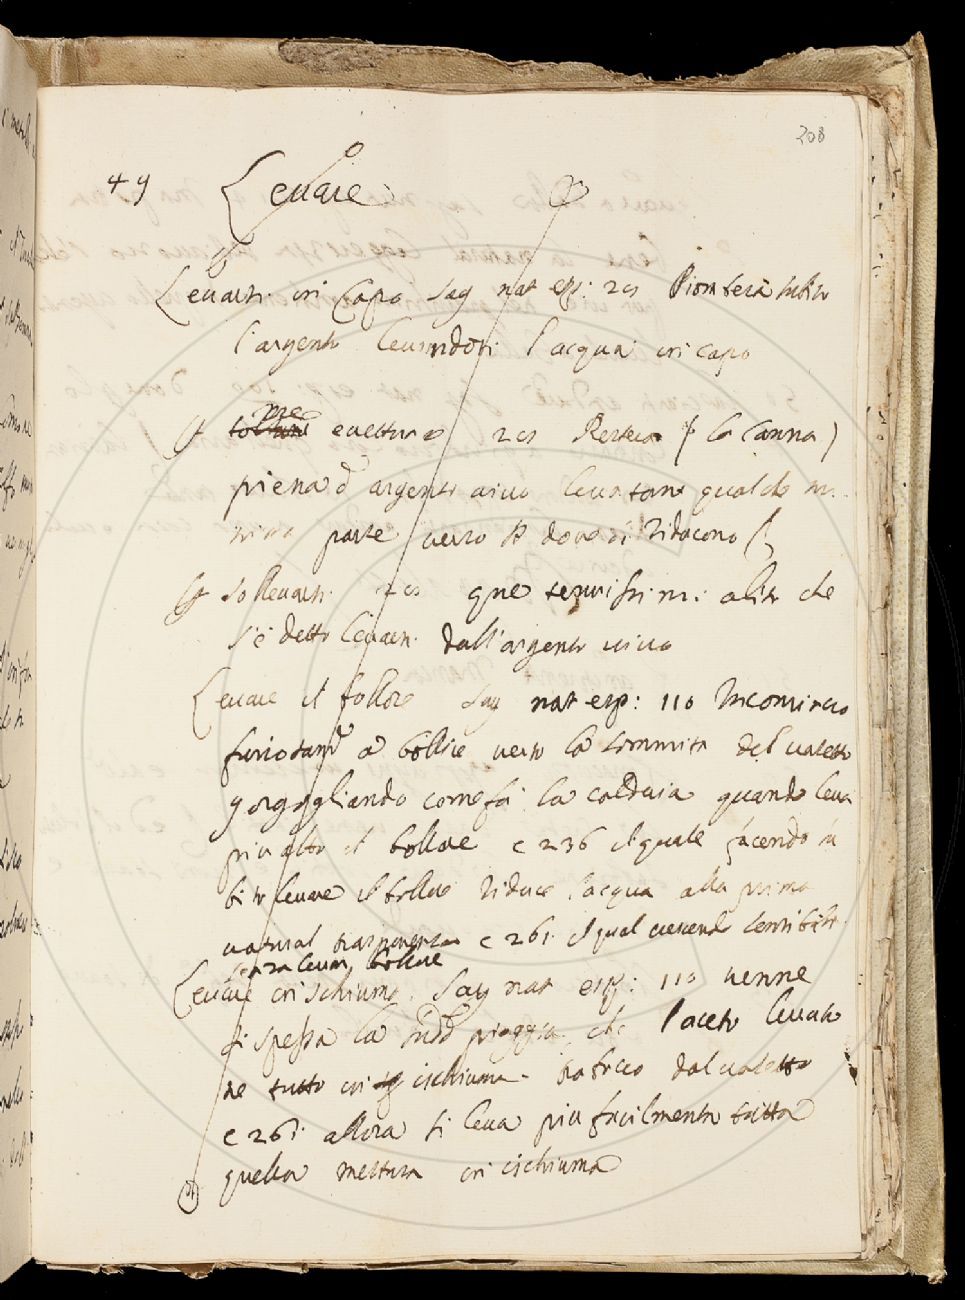 208
49 Levare
Levarsi in Capo Sag nat esp: 29 Piomberà subito
l'argento levandosi l'acqua in capo
mse e mettere 29 Resterà (la canna)
piena d argento vivo levatone qualche mi-
nima parte verso A dove si riducono
Sollevarsi 29 que tenuissimi aliti che
s'è detto levarsi dall'argento vivo
Levare il bollore Sag nat esp: 110 Incominciò
furiosam a bollire verso la sommità del vasetto
gorgogliando come fa la caldaia quando leva
piu alto il bollore e 236 il quale facendo su
bito levare il bollore riduce l'acqua alla prima
natural trasparenza e 261 il qual crescendo sensibilm
senza levar bollore
Levare in schiuma. Sag nat esp: 110 venne
si spessa la sudd pioggia che l'aceto levato
se tutto in ischiuma traboccò dal vasetto
e 261 allora si leva piu facilmente tutta
quella mestura in ischiuma